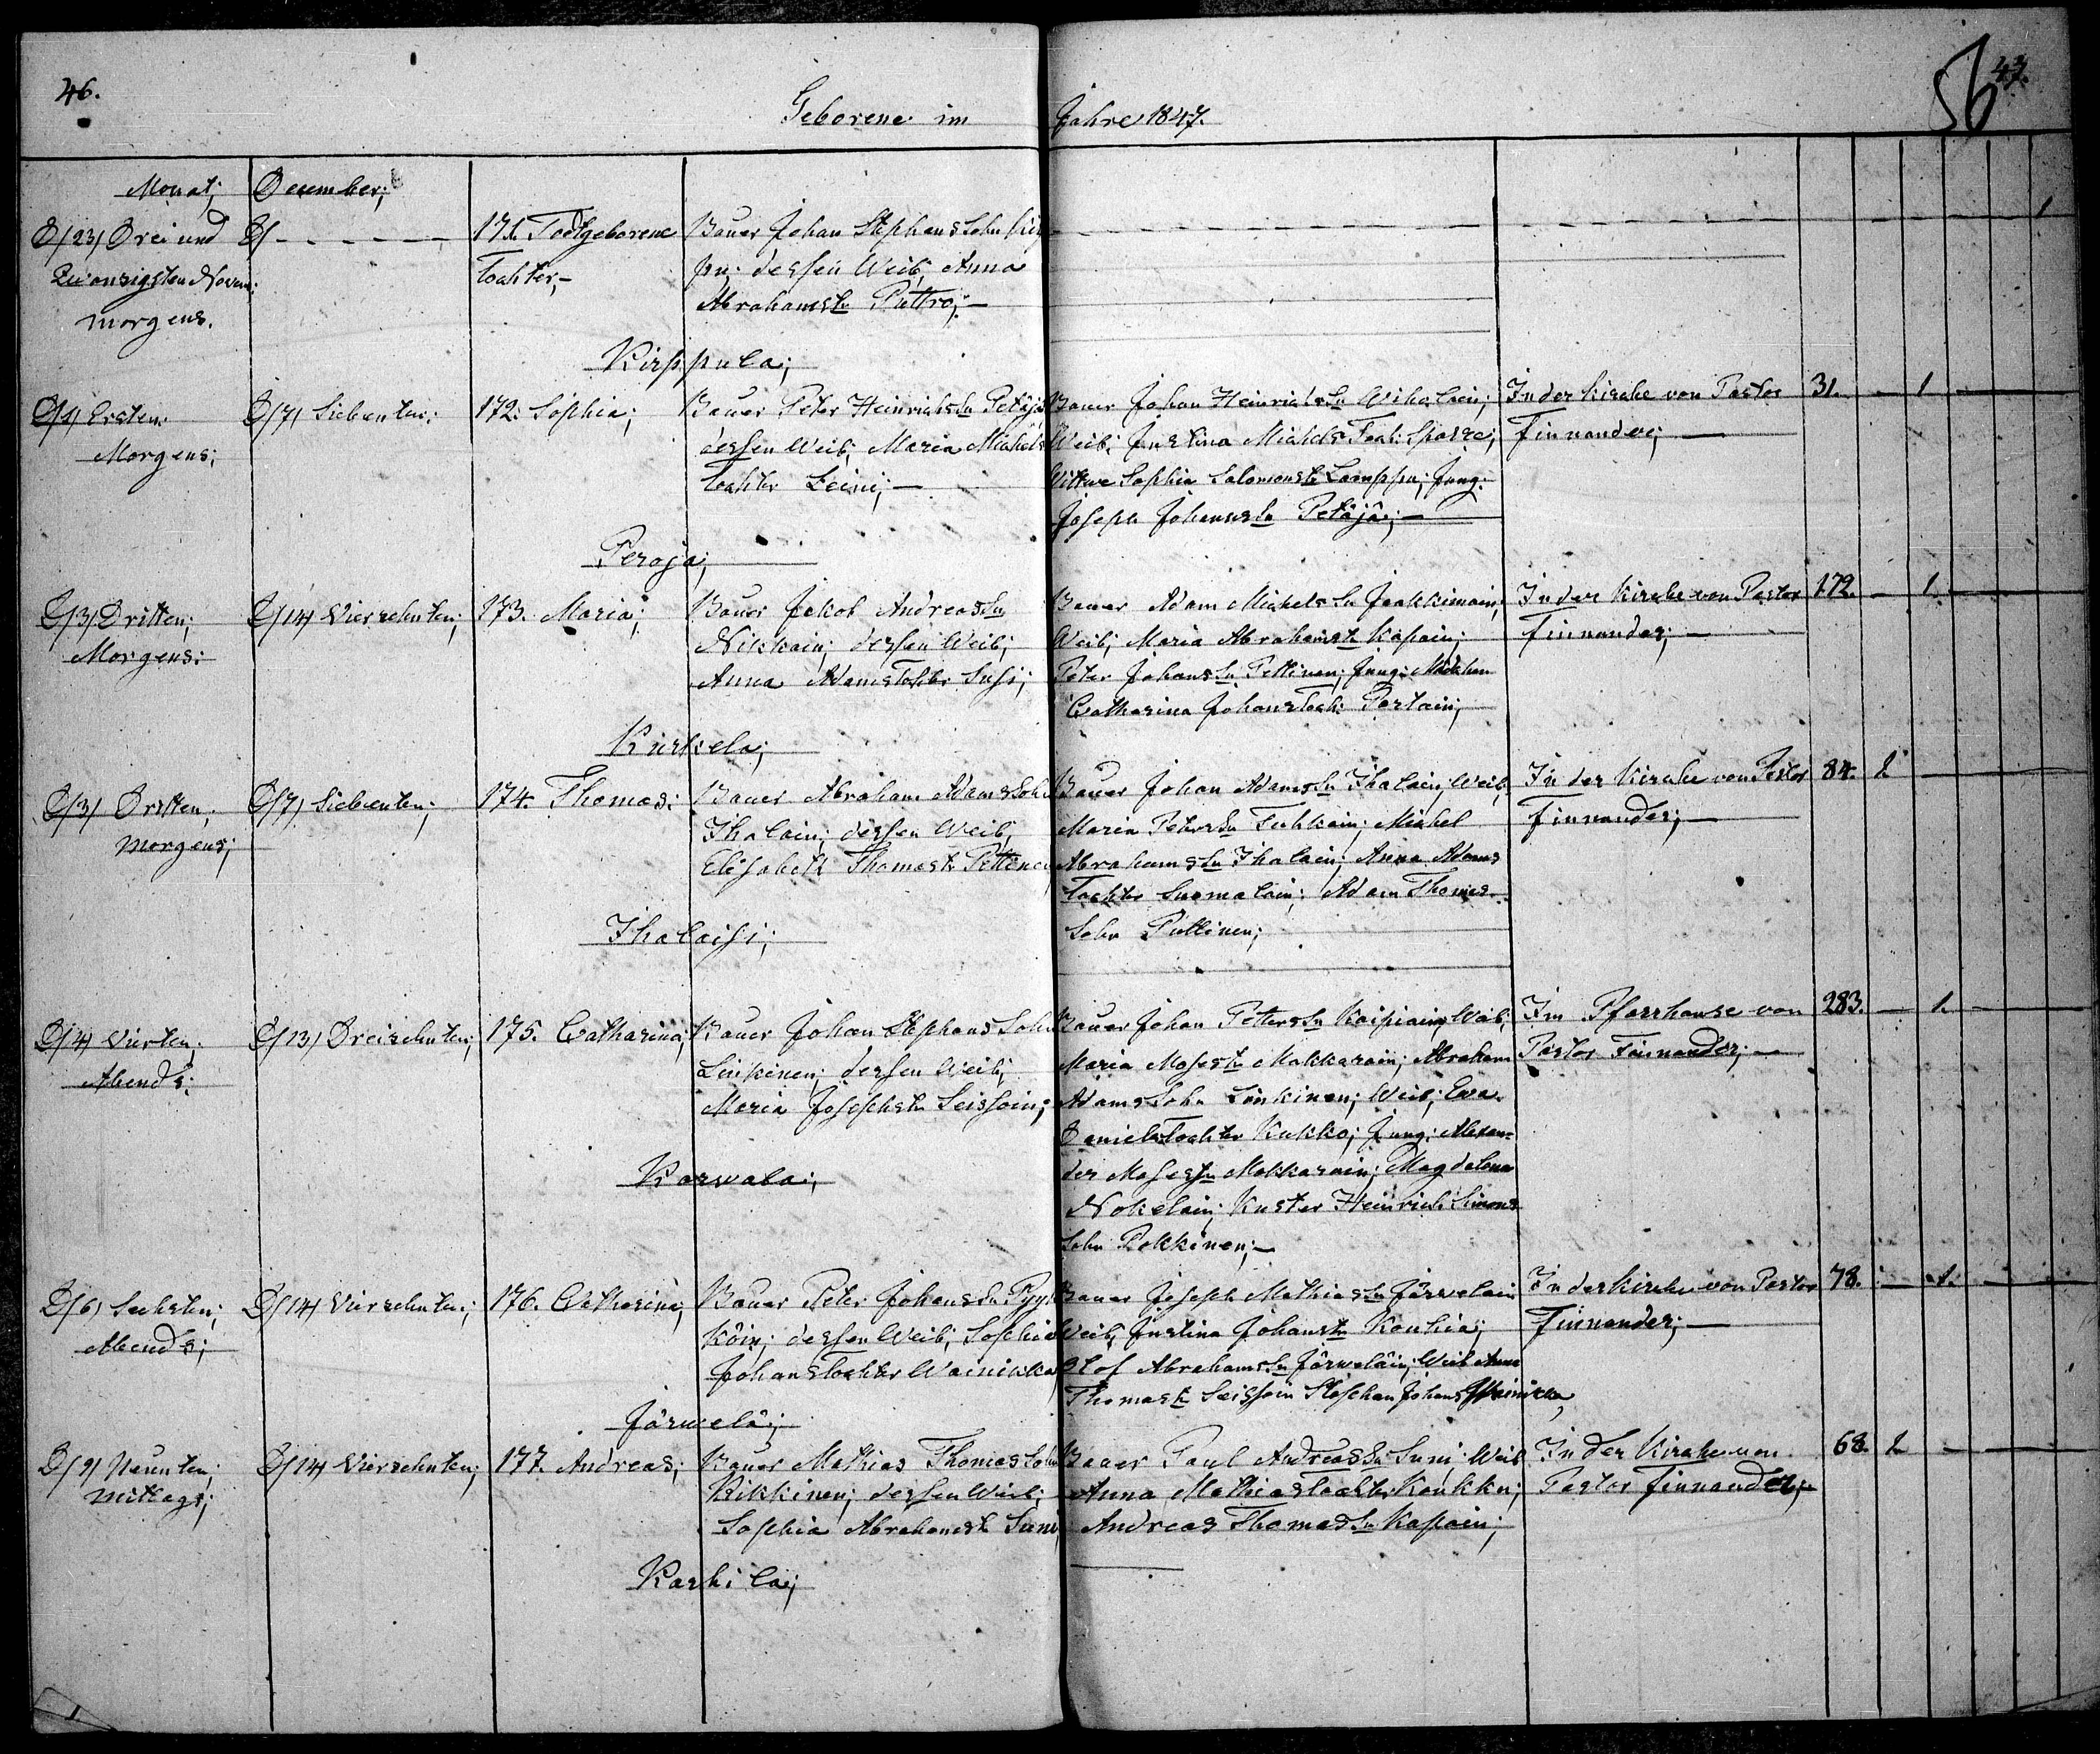 46.
47.
56
Geborene im Jahre 1847.
Monat; December;
D/23/ Drei und
Zwanzigsten Novem:
morgens.
D/ - - - - -
171. Todtgeborene
Tochter,-
Bauer Johan Stephans Sohn
dessen Weib, Anna
Abrahamstr Puttro;-
1
Kirppula;
D/1/ Ersten:
Morgens;
D/7/ Siebenten:
172. Sophia;
Bauer Peter Heinrichs Sn Petäjä
dessen Weib, Maria Michels
Tochter Leini;-
Bauer Johan Heinrichs Sn Wihalain;
Weib; Justina Michels Toch:
Wittwe Sophia Salomonstr Lamppu; Jung:
Joseph Johanns Sn Petäjä;-
In der Kirche von Pastor
Finnander;
31. - 1
Peroja;
D/3/ Dritten;
Morgens:
D/14/ Vierzehnten;
173. Maria;
Bauer Jakob Andreas Sn
Nikkain; dessen Weib;
Anna Adams Tochter Susi;
Bauer Adam Michels Sn Jaakkimain;
Weib; Maria Abrahamstr Kapain;
Peter Johans Sn Pettinen; Jung: Mädchen
Catharina Johans Toch: Partain;
In der Kirche von Pastor
Finnander;
179. - 1.
Kurkela;
D/3/ Dritten,
Morgens;
D/7/ Siebenten;
174. Thomas:
Bauer Abraham Adams Sohn
Ihalain; dessen Weib;
Elisabeth Thomastr Pettinen
Bauer Johan Adams Sn Ihalain; Weib,
Maria Peters Tuhkain; Michel
Abrahams Sn Ihalain; Anna Adams
Tochter Suomalain; Adam Thomas
Sohn Puttinen;
In der Kirche von Pastor
Finnander;
84. 1
Ihalaisi;
D/4/ Vierten;
Abends;
D/13/ Dreizehnten;
175. Catharina;
Bauer Johan Stephans Sohn
Linkinen; dessen Weib;
Maria Josephstr Seissoin;
Bauer Johan Petters Sn Kaipiain; Weib;
Maria Mosestr Makkarain; Abraham
Adams Sohn Linkinen; Weib; Eva
Daniels Tochter Kukko; Jung: Alexan-
der Moses Sn Makkarain; Magdalena
Nokelain; Kuster Heinrich Simons
Sohn Pokkinen;-
Im Pfarrhause von
Pastor Finnander;-
283. - 1.
Karwala;
D/6/ Sechsten;
Abends;
D/14/ Vierzehnten;
176. Catharina;
Bauer Peter Johans Sn Pyy-
köin; dessen Weib; Sophia
Johans Tochter Wainikka
Bauer Joseph Mathias Sn Järweläin
Weib; Justina Johanstr Kouhia;
Olof Abrahams Sn Järweläin; Weib Anna
Thomastr Seissoin Stephan Johans Wainikka
In der Kirche von Pastor
Finnander;
78. - 1.
Järwelä;
D/9/ Neunten;
Mittags;
D/14/ Vierzehnten;
177. Andreas;
Bauer Mathias Thomas Sohn
Kikkinen; dessen Weib;
Sophia Abrahamstr Suni
Bauer Paul Andreas Sn Suni; Weib
Anna Mathias Tochter Koukku;
Andreas Thomas Sn Kapain;
In der Kirche von
Pastor Finnander;-
68. 1
Karhila;